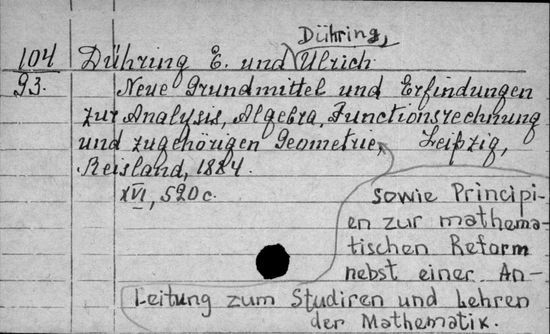 Dühring,
104 Dühring E. und Ulrich
93. Neue Grundmittel und Erfindungen
zur Analysis, Algebra, Functionsrechnung
und zugehörigen Geometrie, Leipzig,
Reisland, 1884.
XVI, 520 c.
sowie Principi-
en zur mathema-
tischen Reform
nebst einer An-
leitung zum Studiren und Lehren
der Mathematik.